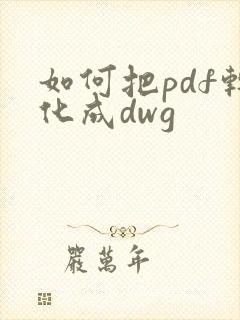 如何把pdf轉
化成dwg
嚴萬年